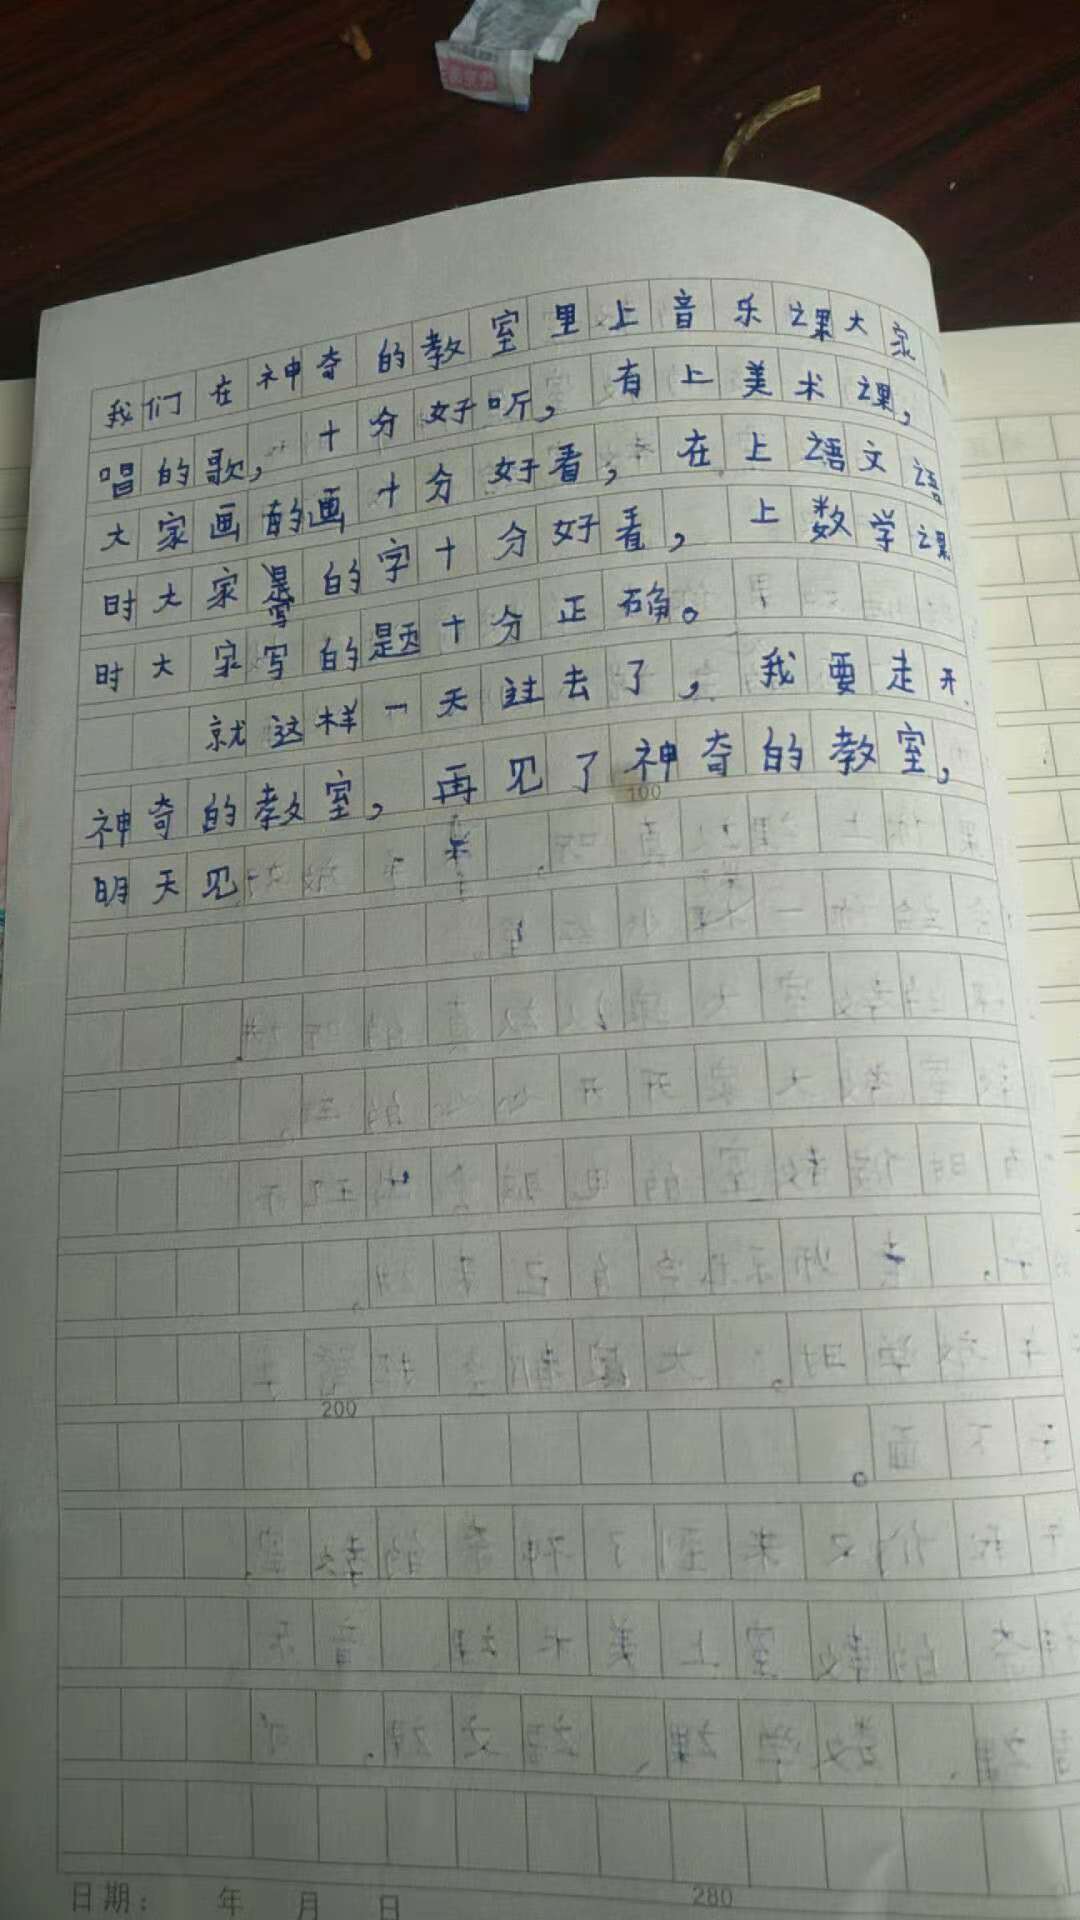 我们在神奇的教室里上音乐课大家
唱的歌，十分好听，有上美术课，
大家画的画十分好看，在上语文语
时大家写的字十分好看，上数学课
时大家写的题十分正确。
就这样一天过去了，我要走开
神奇的教室，再见了神奇的教室，
明天见
100
200
280
日期： 年 月 日